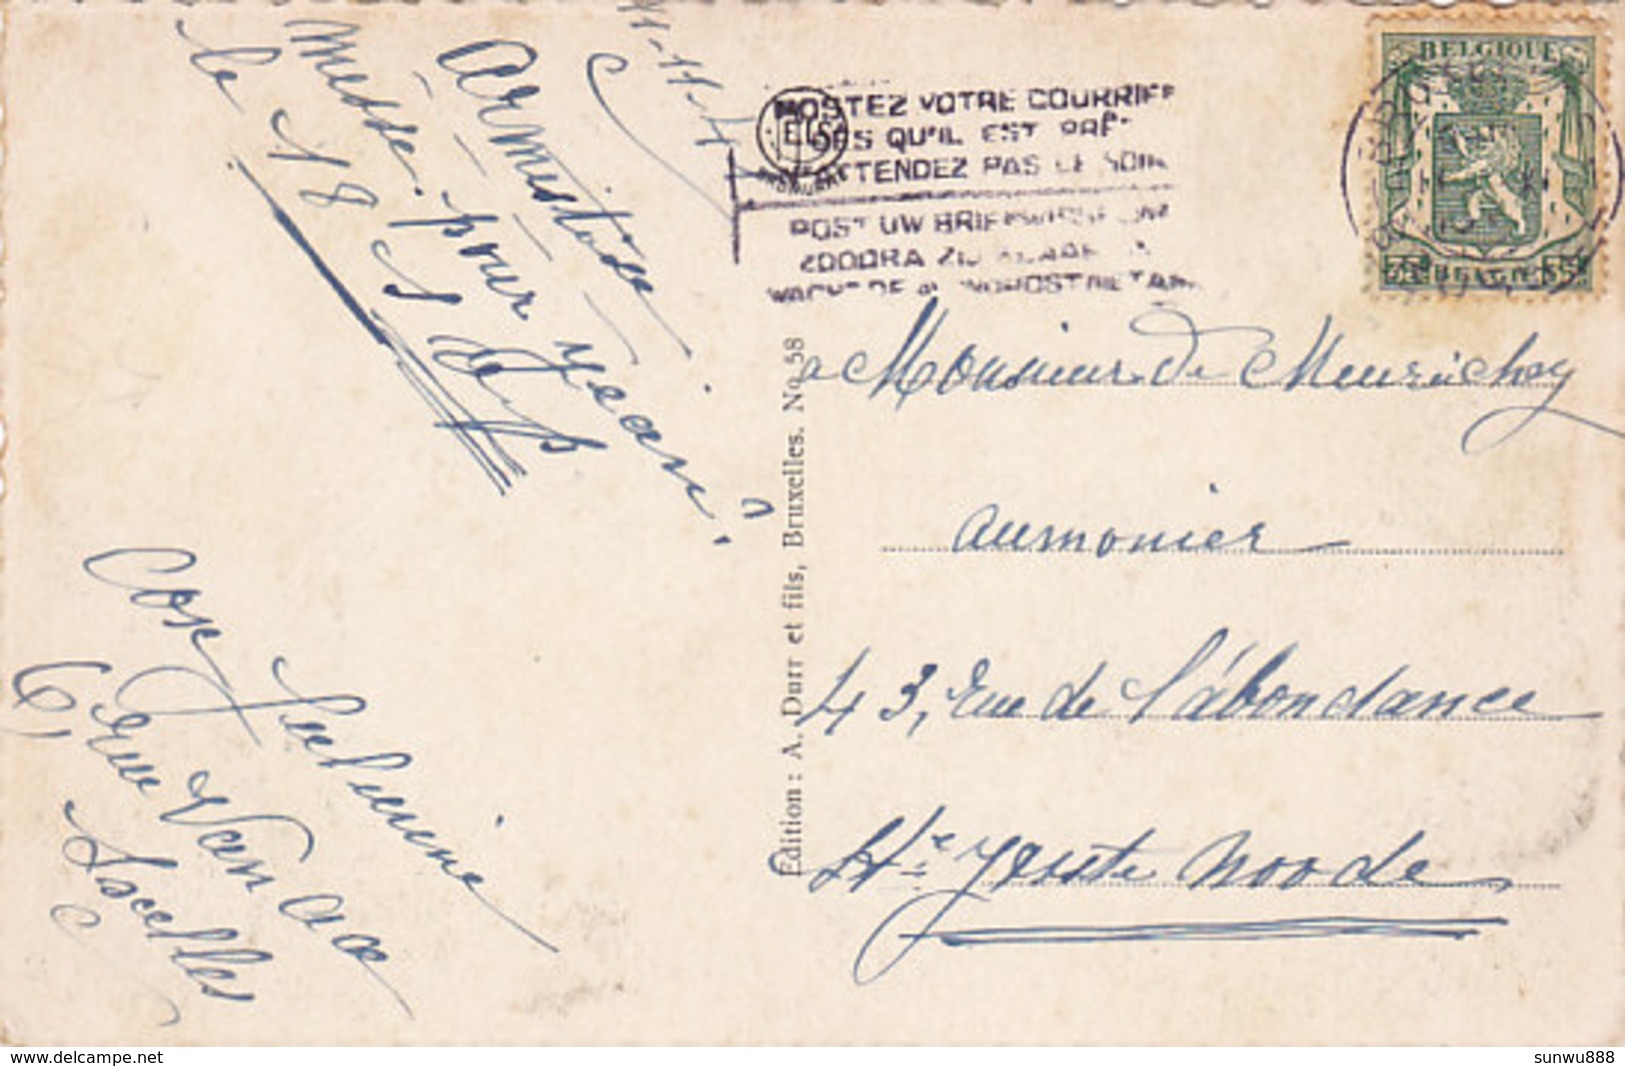 11-11-4
Armistice
Messe pour Jean
le 18 Sde
6, rue Van Aa
Ixelles
POSTEZ VOTRE COURRIER
DES QU'IL EST PRÊT
N'ATTENDEZ PAS LE SOIR
POST UW BRIEFWISSELING
ZOODRA ZIJ KLAAR IS
WACHT DE AVONDPOST NIET AF
BELGIQUE
BELGIE
à Monsieur de Meurichy
aumonier
43, rue de l'abondance
St Josse te Noode
Edition : A. Durr et fils, Bruxelles. No 58
www.delcampe.net
sunwu888